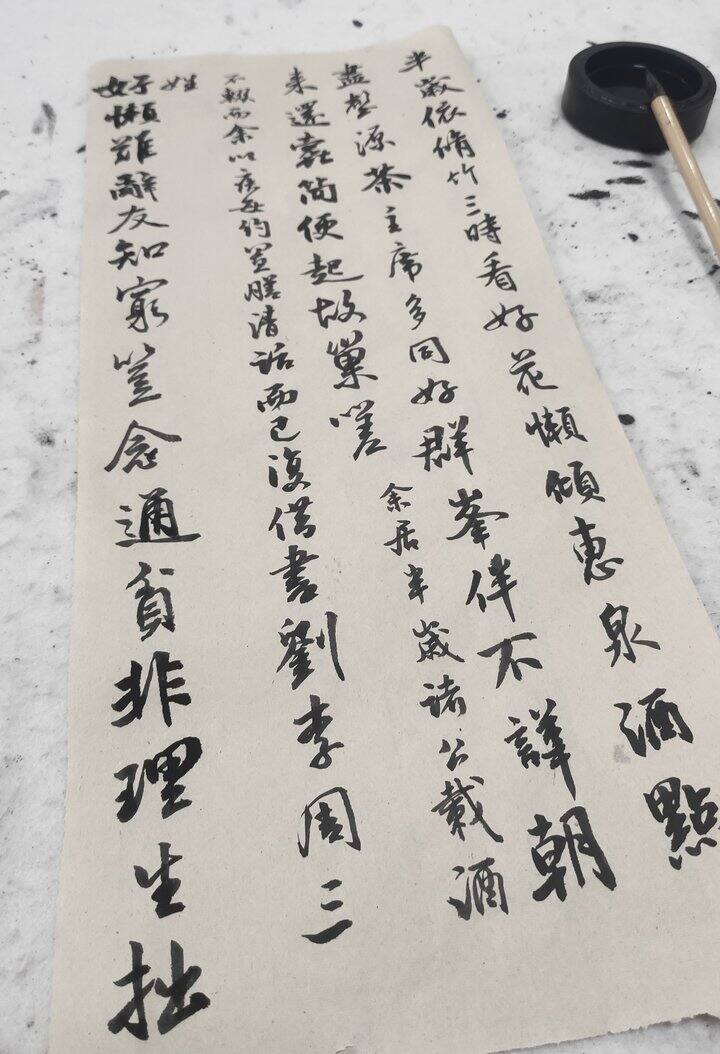 半歲依脩竹三時看好花懶傾惠泉酒點
盡壑源茶主席多同好群峯伴不譁朝
来還蠹简便起故巢嗟余居半歲諸公載酒
不輟而余以疾每約置膳清話而已復借書劉李周三
姓
好懶難辭友知窮豈念通貧非理生拙